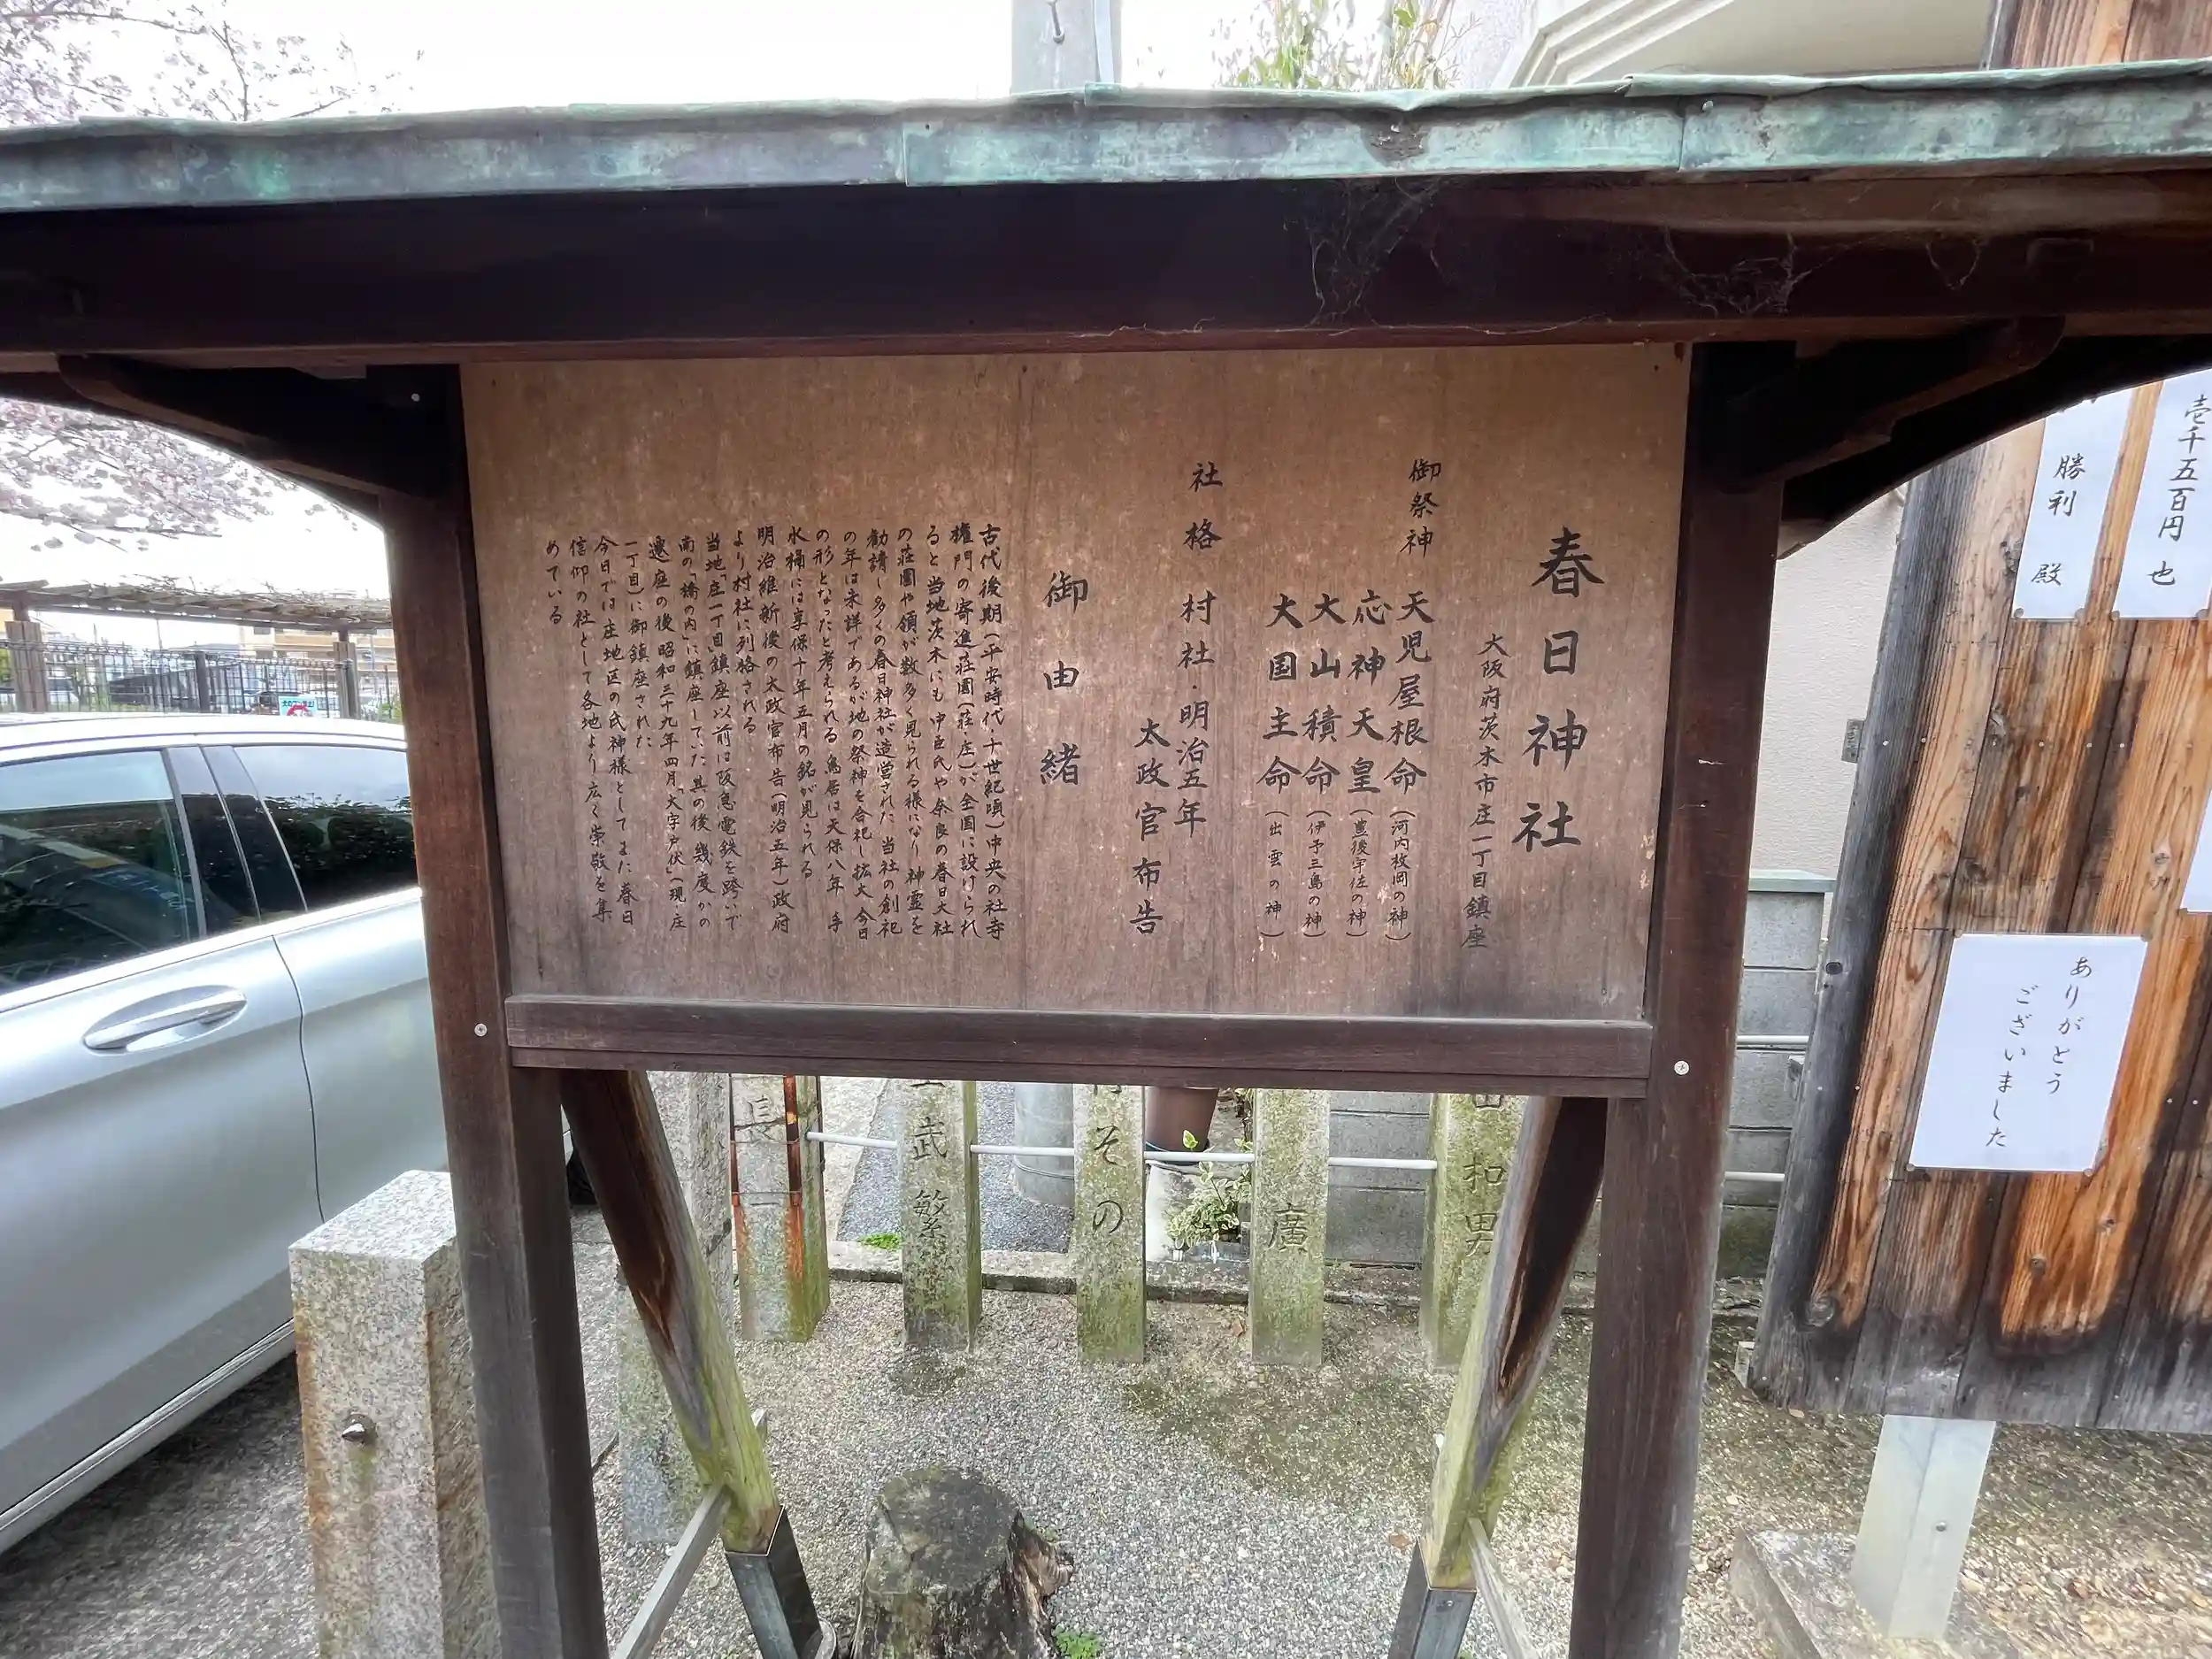 春日神社
大阪府茨木市庄一丁目鎮座
御祭神 天児屋根命(河内枚岡の神)
応神天皇(豊後宇佐の神)
大山積命(伊予三島の神)
大国主命(出雲の神)
社格 村社・明治五年
太政官布告
御由緒
古代後期(平安時代・十世紀頃)中央の社寺
権門の寄進荘園(荘・庄)が全国に設けられ
ると当地茨木にも中臣氏や奈良の春日大社
の荘園や領が数多く見られる様になり 神霊を
勧請し多くの春日神社が造営された 当社の創祀
の年は未詳であるが地の祭神を合祀し拡大 今日
の形となったと考えられる 鳥居は天保八年 手
水桶には享保十年五月の銘が見られる
明治維新後の太政官布告(明治五年)政府
より村社に列格される
当地「庄一丁目」鎮座以前は阪急電鉄を跨いで
南の「橋の内」に鎮座していた 其の後幾度かの
遷座の後 昭和三十九年四月「大字戸伏」(現・庄
一丁目)に御鎮座された
今日では庄地区の氏神様としてまた 春日
信仰の社として各地より広く崇敬を集
めている
壱千五百円 也
勝利 殿
ありがとう
ございました
長一
武繁
その
廣
和男